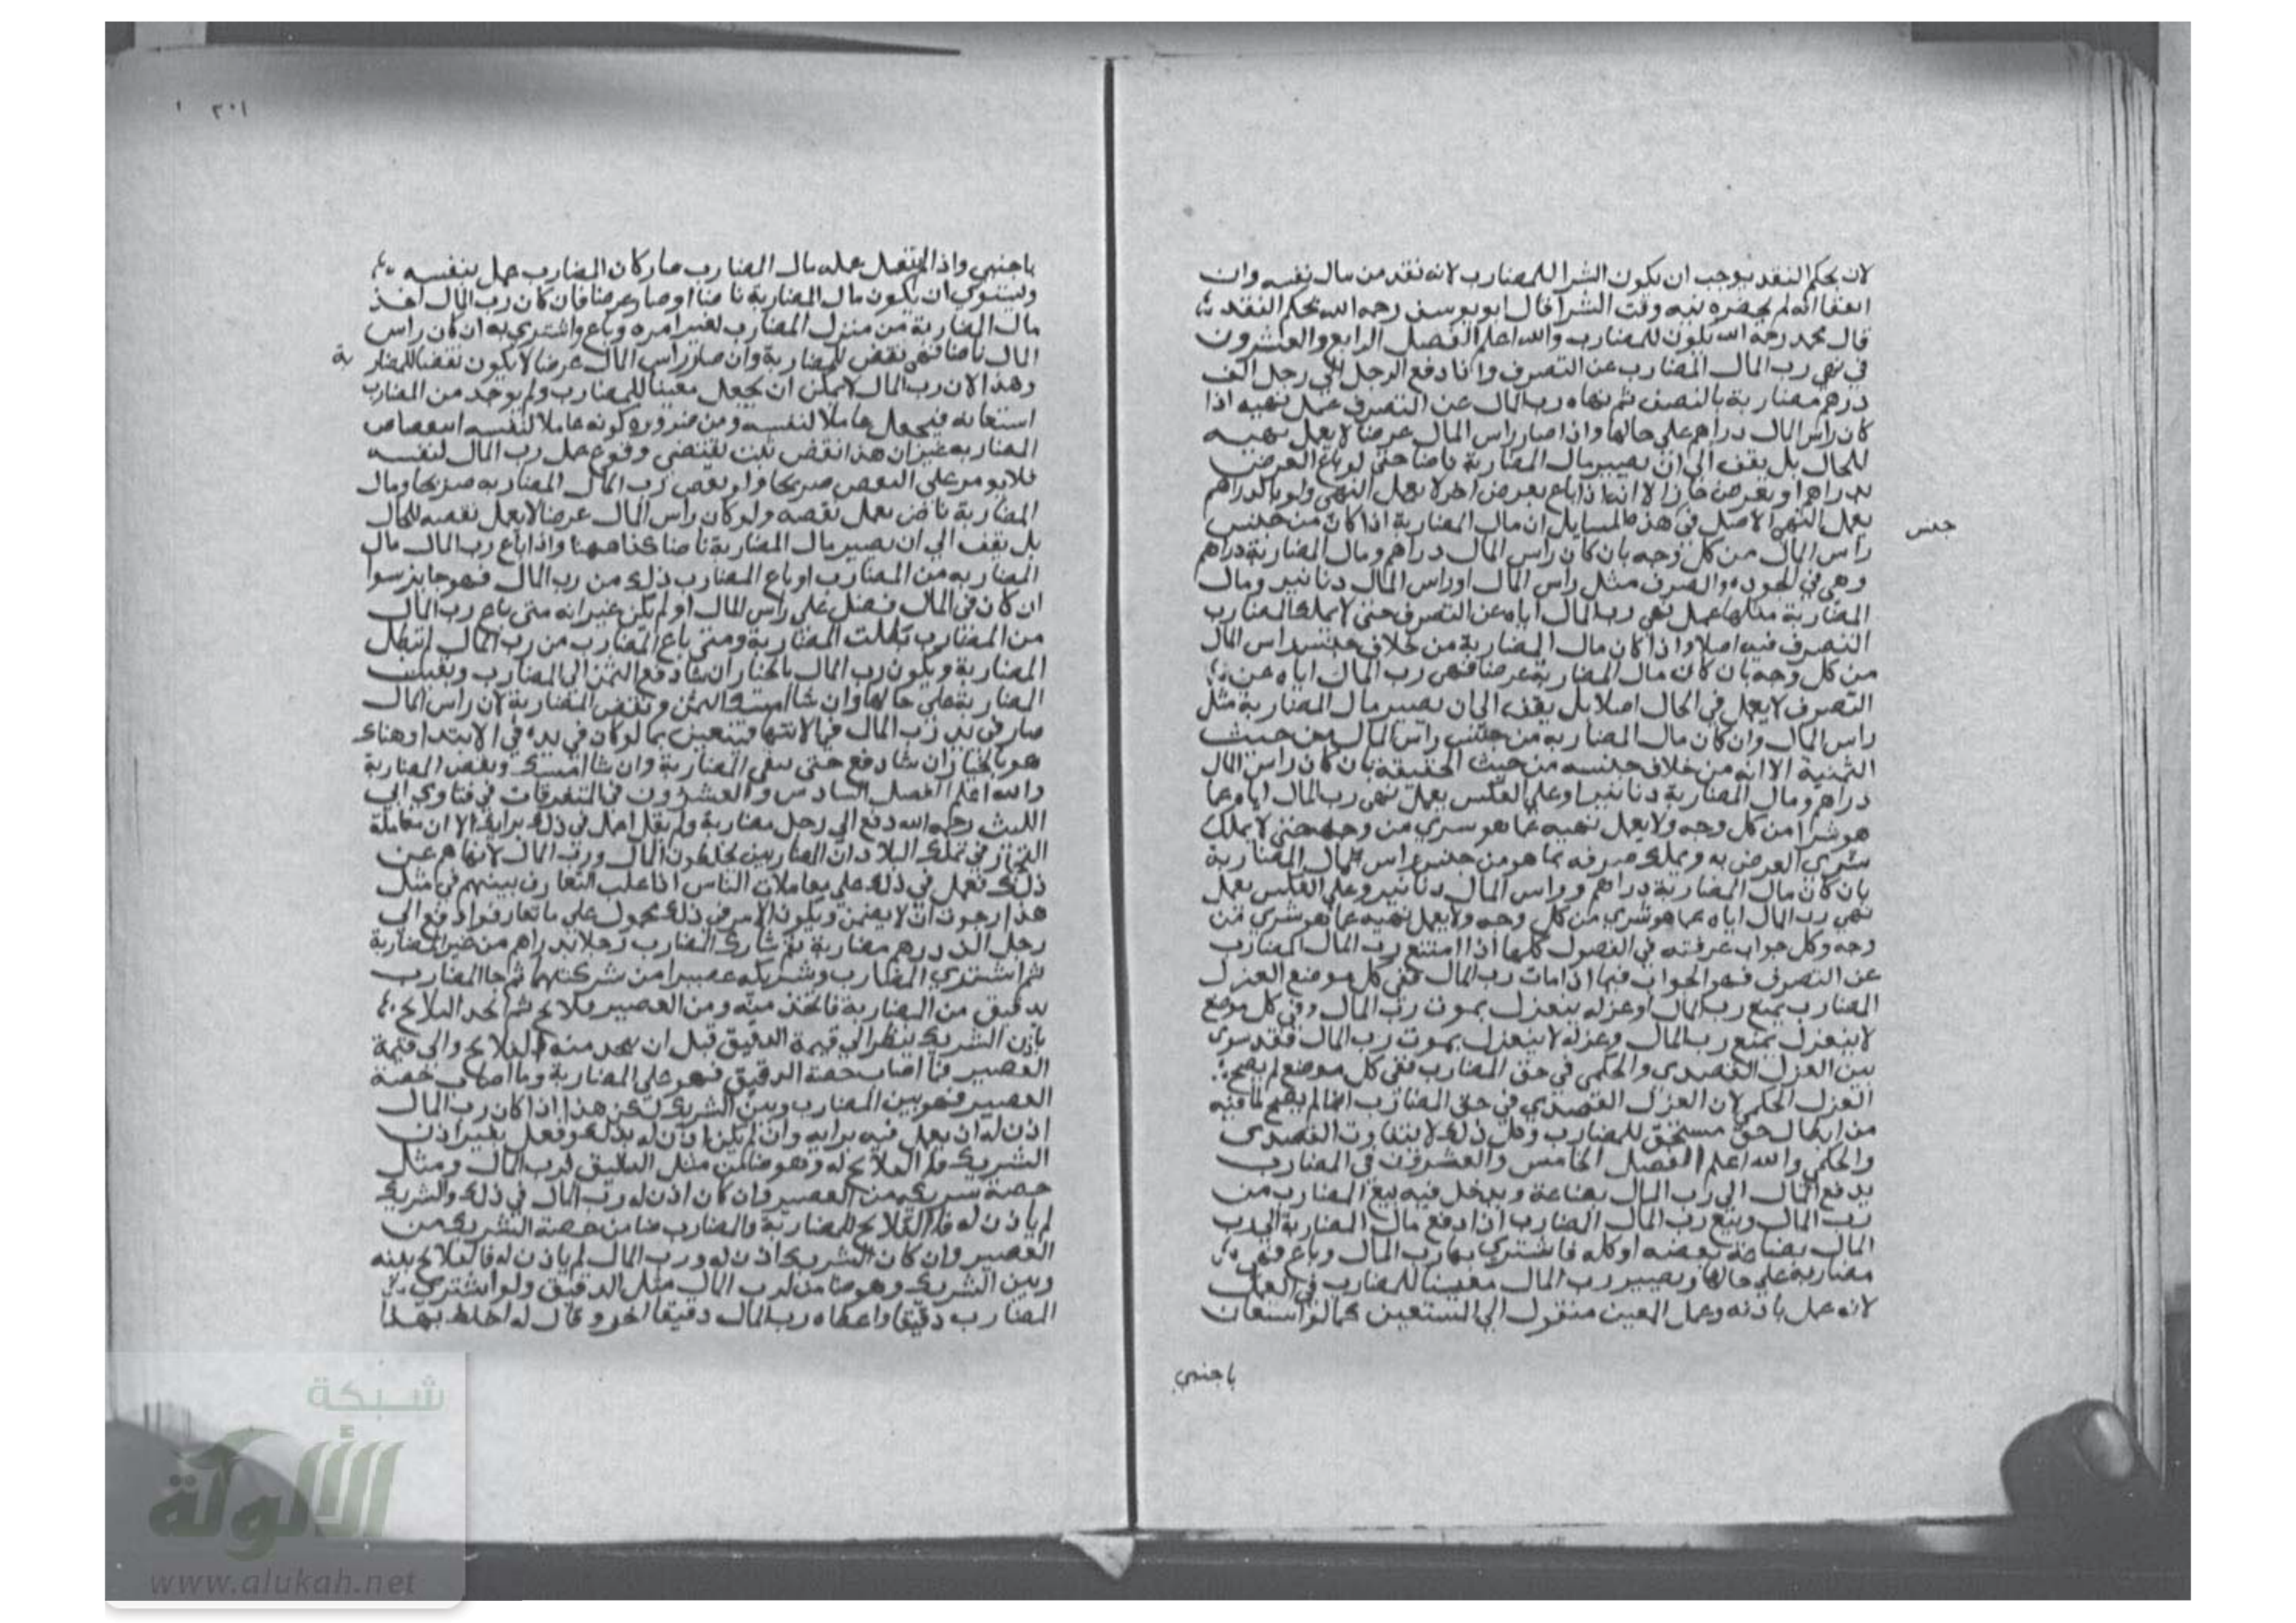 لان يحكم النقد يوجب ان يكون الشرا للمضارب لانه نقد من مال نفسه وان
اتفقا انه لم يحضره نيه وقت الشرا قال ابو يوسف رحمه الله يحكم النقد
قال محمد رحمه الله يكون للمضارب والله اعلم الفصل الرابع والعشرون
في نهي رب المال المضارب عن التصرف واذا دفع الرجل الي رجل الف
درهم مضاربة بالنصف ثم نهاه رب المال عن التصرف عمل نهيه اذا
كان راس المال دراهم علي حالها واذا صار راس المال عرضا لا يعمل نهيه
للحال بل يقف الي ان يصير مال المضاربة ناضا حتي لو باع العرض
بدراهم او بعرض جاز الا انه اذا باع بعرض اخر لا يعمل النهي ولو بالدراهم
يعمل النهي الاصل في هذه المسايل ان مال المضاربة اذا كان من جنس
جنس
راس المال من كل وجه بان كان راس المال دراهم ومال المضاربة دراهم
وهي في الجوده والصرف مثل راس المال او راس المال دنانير ومال
المضاربة مثلها عمل نهي رب المال اياه عن التصرف حتي لا يملك المضارب
التصرف فيه اصلا واذا كان مال المضاربة من خلاف جنس راس المال
من كل وجه بان كان مال المضاربة عرضا فنهي رب المال اياه عن
التصرف لا يعمل في الحال اصلا بل يقف الي ان يصير مال المضاربة مثل
راس المال وان كان مال المضاربه من جنس راس المال من حيث
الثمنية الا انه من خلاف جنسه من حيث الحقيقة بان كان راس المال
دراهم ومال المضاربة دنانير او علي العكس يعمل نهي رب المال اياه عما
هو شرا من كل وجه ولا يعمل نهيه عما هو شري من وجه حتي لا يملك
شري العرض به ويملك صرفه بما هو من جنس راس مال المضاربة
بان كان مال المضاربة دراهم وراس المال دنانير وعلي العكس يعمل
نهي رب المال اياه عما هو شري من كل وجه ولا يعمل نهيه عما هو شري من
وجه وكل جواب عرفته في الفصول كلها اذا امتنع رب المال المضارب
عن التصرف فهو الجواب فيما اذا مات رب المال ففي كل موضع العزل
المضارب بمنع رب المال او عزله ينعزل بموت رب المال وفي كل موضع
لا ينعزل بمنع رب المال وعزله لا ينعزل بموت رب المال فقد سوي
بين العزل القصدي والحكمي في حق المضارب ففي كل موضع لم يصح
العزل الحكمي لان العزل القصدي في حق المضارب انما لم يصح لما فيه
من ابطال حق مستحق للمضارب وكل ذلك لا يتفاوت القصدي
والحكمي والله اعلم الفصل الخامس والعشرون في المضارب
يدفع المال الي رب المال بضاعة ويدخل فيه بيع المضارب من
رب المال وبيع رب المال المضارب اذا دفع مال المضاربة الي رب
المال بضاعة بعضه او كله فاشتري بها رب المال وباع فهي
مضاربة علي حالها ويصير رب المال معينا للمضارب في العمل
لانه عمل باذنه وعمل المعين منقول الي المستعين كما لو استعان
باجنبي
٢٠١
باجنبي واذا انتقل عمله بمال المضارب صار كان المضارب عمل بنفسه
ويستوي ان يكون مال المضاربة ناضا او صار عرضا فان كان رب المال اخذ
مال المضاربة من منزل المضارب لغير امره وباع واشتري به ان كان راس
المال ناضا فهو نقض للمضاربة وان صار راس المال عرضا لا يكون نقضا للمضاربة
وهذا لان رب المال لا يمكن ان يجعل معينا للمضارب ولم يوجد من المضارب
استعانه فيجعل عاملا لنفسه ومن ضروره كونه عاملا لنفسه انتقاض
المضاربه غير ان هذا نقض ثبت بمقتضي وقوع عمل رب المال لنفسه
فلا يوم علي النقض صريحا ولو نقض رب المال المضاربه صريحا ومال
المضاربة ناض يعمل نقضه ولو كان راس المال عرضا لا يعمل نقضه للحال
بل يقف الي ان يصير مال المضاربة ناضا كذا ههنا واذا باع رب المال مال
المضاربه من المضارب او باع المضارب ذلك من رب المال فهو جايز سوا
ان كان في المال فضل علي راس المال او لم يكن غير انه متي باع رب المال
من المضارب بطلت المضاربة ومتي باع المضارب من رب المال لم تبطل
المضاربة ويكون رب المال بالخيار ان شا دفع الثمن الي المضارب وبقيت
المضاربة علي حالها وان شا امسك الثمن ونقض المضاربة لان راس المال
صار في يد رب المال في الانتها فيتعين بما لو كان في يده في الابتدا وهناك
هو بالخيار ان شا دفع حتي تبقي المضاربة وان شا امسك ونقض المضاربة
والله اعلم الفصل السادس والعشرون في المتفرقات في فتاوي ابي
الليث رحمه الله دفع الي رجل مضاربة ولم يقل اعمل في ذلك برايك الا ان معاملة
التجار في تلك البلاد ان المضاربين يخلطون المال ورب المال لا ينهاهم عن
ذلك فعمل في ذلك علي معاملات الناس اذا غلب التعارف بينهم في مثل
هذا ارجو ان لا يضمن ويكون الامر في ذلك محمول علي ما تعارفوا دفع الي
رجل الف درهم مضاربة ثم شارك المضارب رجلا بدراهم من غير المضاربة
ثم اشتري المضارب وشريكه عصيرا من شركتهما ثم جا المضارب
بدقيق من المضاربة فاتخذ منه ومن العصير فلا تج ثم اتخذ الفلاتج
باذن الشريك ينظر الي قيمة الدقيق قبل ان يتخذ منه الفلاتج والي قيمة
العصير فما اصاب حصة الدقيق فهو علي المضاربة وما اصاب حصة
العصير فهو بين المضارب وبين الشريك لكن هذا اذا كان رب المال
اذن له ان يعمل فيه برايه وان لم يكن اذن له بذلك وفعل بغير اذن
الشريك فالفلاتج له وهو ضامن مثل الدقيق لرب المال ومثل
حصة شريكه من العصير وان كان اذن له رب المال في ذلك والشريك
لم ياذن له فالفلاتج للمضاربة والمضارب ضامن حصة الشريك من
العصير وان كان الشريك اذن له ورب المال لم ياذن له فالفلاتج بينه
وبين الشريك وهو ضامن لرب المال مثل الدقيق ولو اشتري
المضارب دقيقا واعطاه رب المال دقيقا اخر وقال له اخلط بهذا
شبكة
الألوكة
www.alukah.net